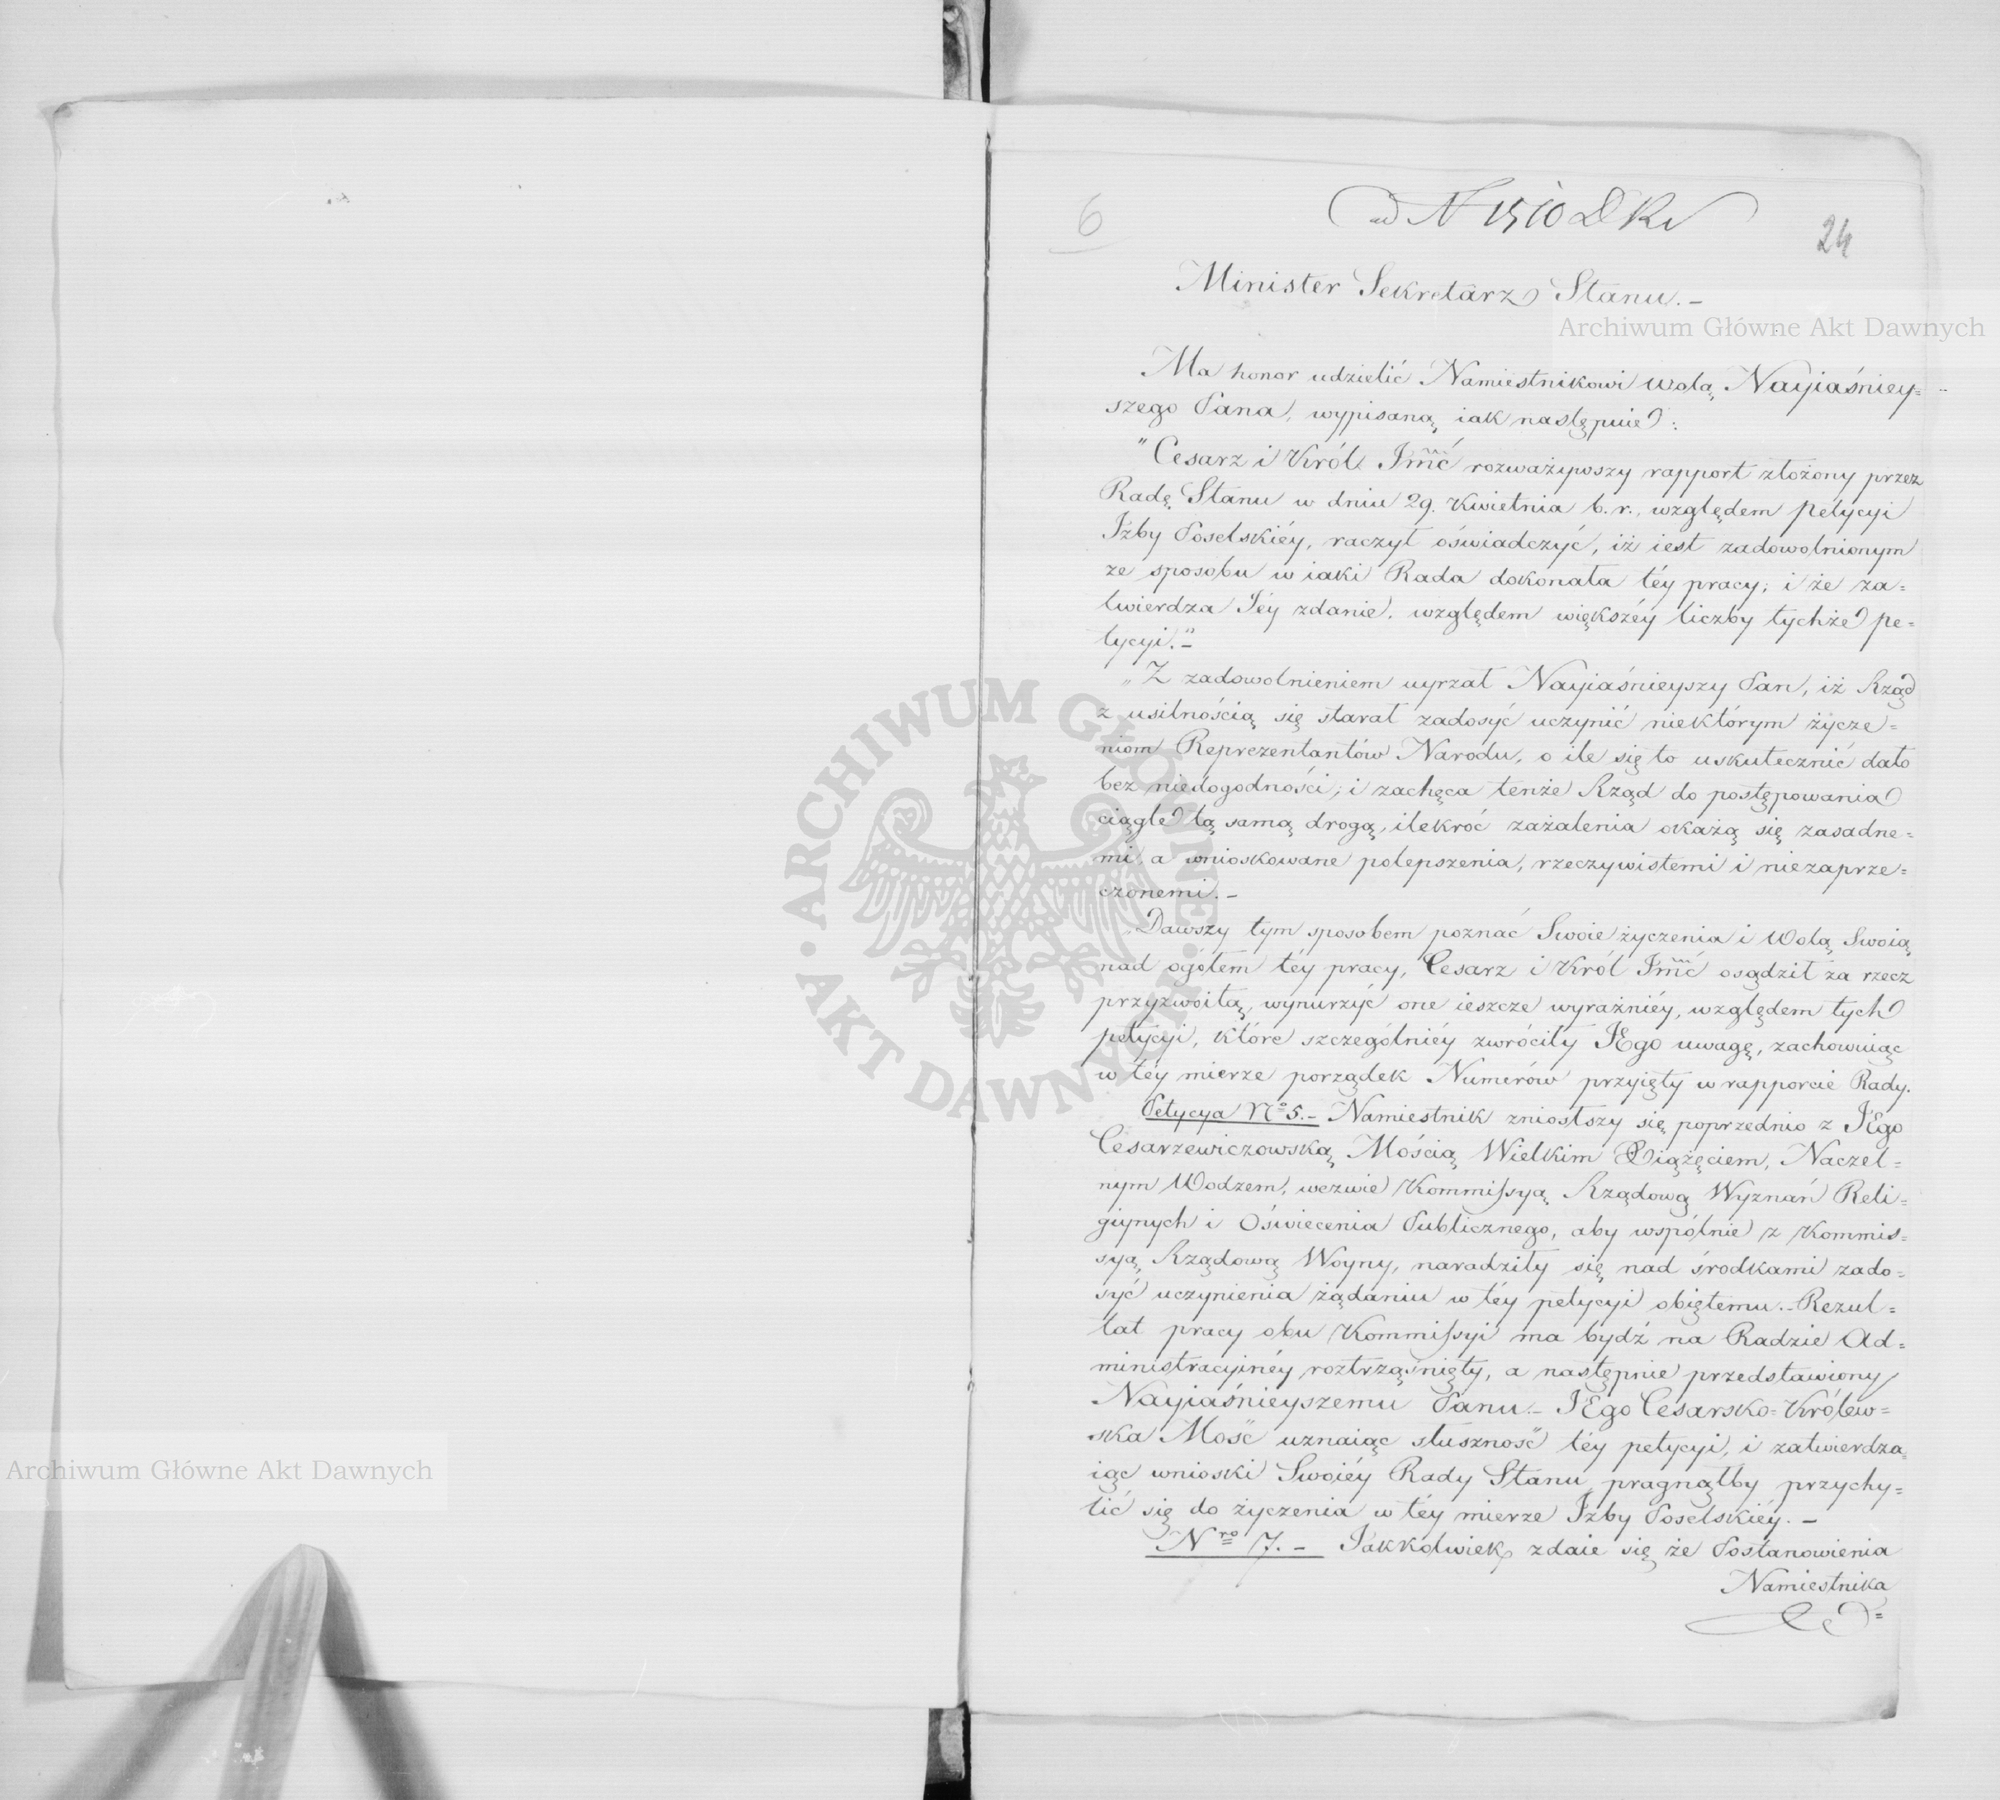 6
ad N 1510 D R
24
Minister Sekretarz Stanu. –
Archiwum Główne Akt Dawnych
Ma honor udzielić Namiestnikowi Wolą Nayiaśniey=
szego Pana, wypisaną iak następuie:
"Cesarz i Król Jmć rozważywszy rapport złożony przez
Radę Stanu w dniu 29. Kwietnia b. r., względem petycyi
Izby Poselskiéy, raczył oświadczyć, iż iest zadowolnionym
ze sposobu w iaki Rada dokonała téy pracy; i że za=
twierdza Jéy zdanie, względem większéy liczby tychże pe=
tycyi." –
"Z zadowolnieniem uyrzał Nayiaśnieyszy Pan, iż Rząd
z usilnością się starał zadosyć uczynić niektórym życze=
niom Reprezentantów Narodu, o ile się to uskutecznić dało
bez niedogodności; i zachęca tenże Rząd do postępowania
ciągle tą samą drogą, ilekroć zażalenia okażą się zasadne=
mi, a wnioskowane polepszenia, rzeczywistemi i niezaprze=
czonemi. –
"Dawszy tym sposobem poznać Swoie życzenia i Wolą Swoią
nad ogółem téy pracy, Cesarz i Król Jmć osądził za rzecz
przyzwoitą, wynurzyć one ieszcze wyraźniéy, względem tych
petycyi, które szczególniéy zwróciły JEgo uwagę, zachowuiąc
w téy mierze porządek Numerów przyięty w rapporcie Rady.
Petycya No 5. – Namiestnik zniosłszy się poprzednio z JEgo
Cesarzewiczowską Mością Wielkim Xiążęciem, Naczel=
nym Wodzem, wezwie Kommissyą Rządową Wyznań Reli=
giynych i Oświecenia Publicznego, aby wspólnie z Kommis=
syą Rządową Woyny, naradziły się nad środkami zado=
syć uczynienia żądaniu w téy petycyi obiętemu. – Rezul=
tat pracy obu Kommissyi ma bydź na Radzie Ad=
ministracyinéy roztrząśnięty, a następnie przedstawiony
Nayiaśnieyszemu Panu. – JEgo Cesarsko=Królew=
ska Mość uznaiąc słuszność téy petycyi, i zatwierdza=
iąc wnioski Swoiéy Rady Stanu, pragnąłby przychy=
lić się do życzenia w téy mierze Izby Poselskiéy. –
Nro 7. – Jakkolwiek zdaie się że Postanowienia
Namiestnika
ARCHIWUM GŁÓWNE
AKT DAWNYCH
Archiwum Główne Akt Dawnych